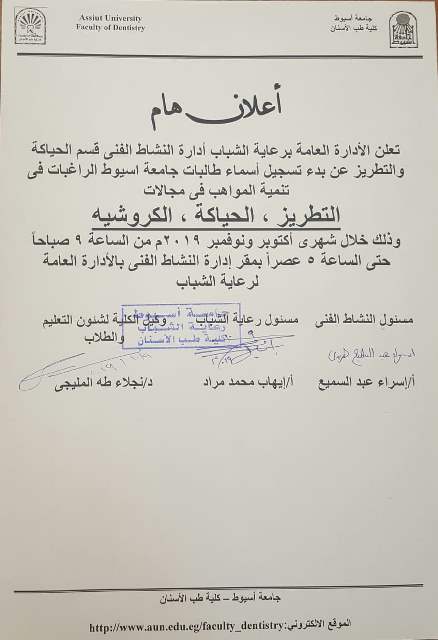 Assiut University
Faculty of Dentistry
جامعة أسيوط
كلية طب الأسنان
أعلان هام
تعلن الأدارة العامة برعاية الشباب أدارة النشاط الفنى قسم الحياكة
والتطريز عن بدء تسجيل أسماء طالبات جامعة اسيوط الراغبات فى
تنمية المواهب فى مجالات
التطريز ، الحياكة ، الكروشيه
وذلك خلال شهرى أكتوبر ونوفمبر ٢٠١٩م من الساعة ٩ صباحاً
حتى الساعة ٥ عصراً بمقر إدارة النشاط الفنى بالأدارة العامة
لرعاية الشباب
مسئول النشاط الفنى مسئول رعاية الشباب وكيل الكلية لشئون التعليم
والطلاب
جامعة أسيوط
رعاية الشباب
كلية طب الأسنان
أ/إسراء عبد السميع أ/إيهاب محمد مراد د/نجلاء طه المليجى
جامعة أسيوط – كلية طب الأسنان
الموقع الالكتروني:http://www.aun.edu.eg/faculty_dentistry